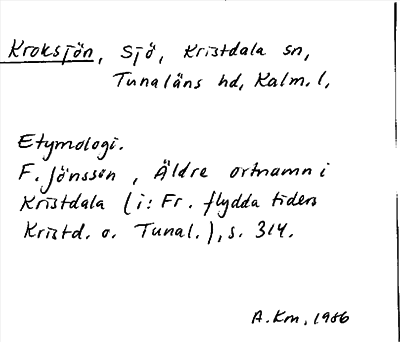 Kroksjön, Sjö, Kristdala sn,
Tunaläns hd, Kalm. l,
Etymologi.
F. Jönsson, Äldre ortnamn i
Kristdala (i: Fr. flydda tiders
Kristd. o. Tunal.), s. 314.
A. Km, 1986